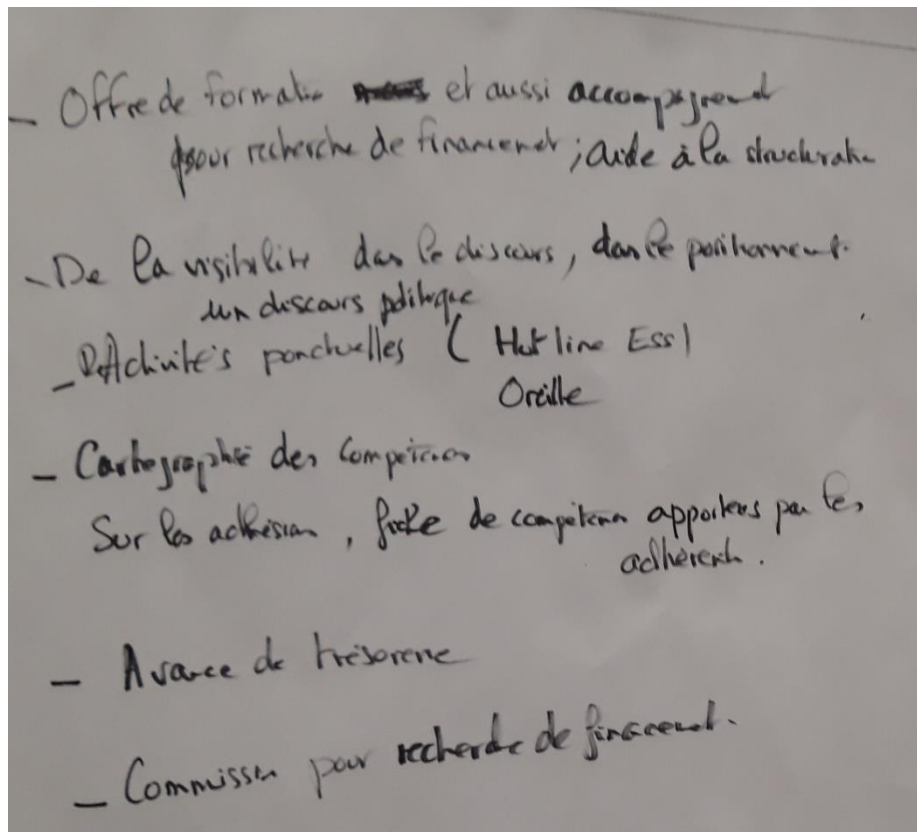 - Offre de formation et aussi accompagnement
pour recherche de financement ; aide à la structuration
- De la visibilité dans le discours, dans le positionnement.
un discours politique
- Activités ponctuelles ( Hot line Ess)
Oreille
- Cartographie des compétences
Sur les adhésion, de compétences apportées par les
adhérents.
- Avance de trésorerie
- Commission pour recherche de financement.